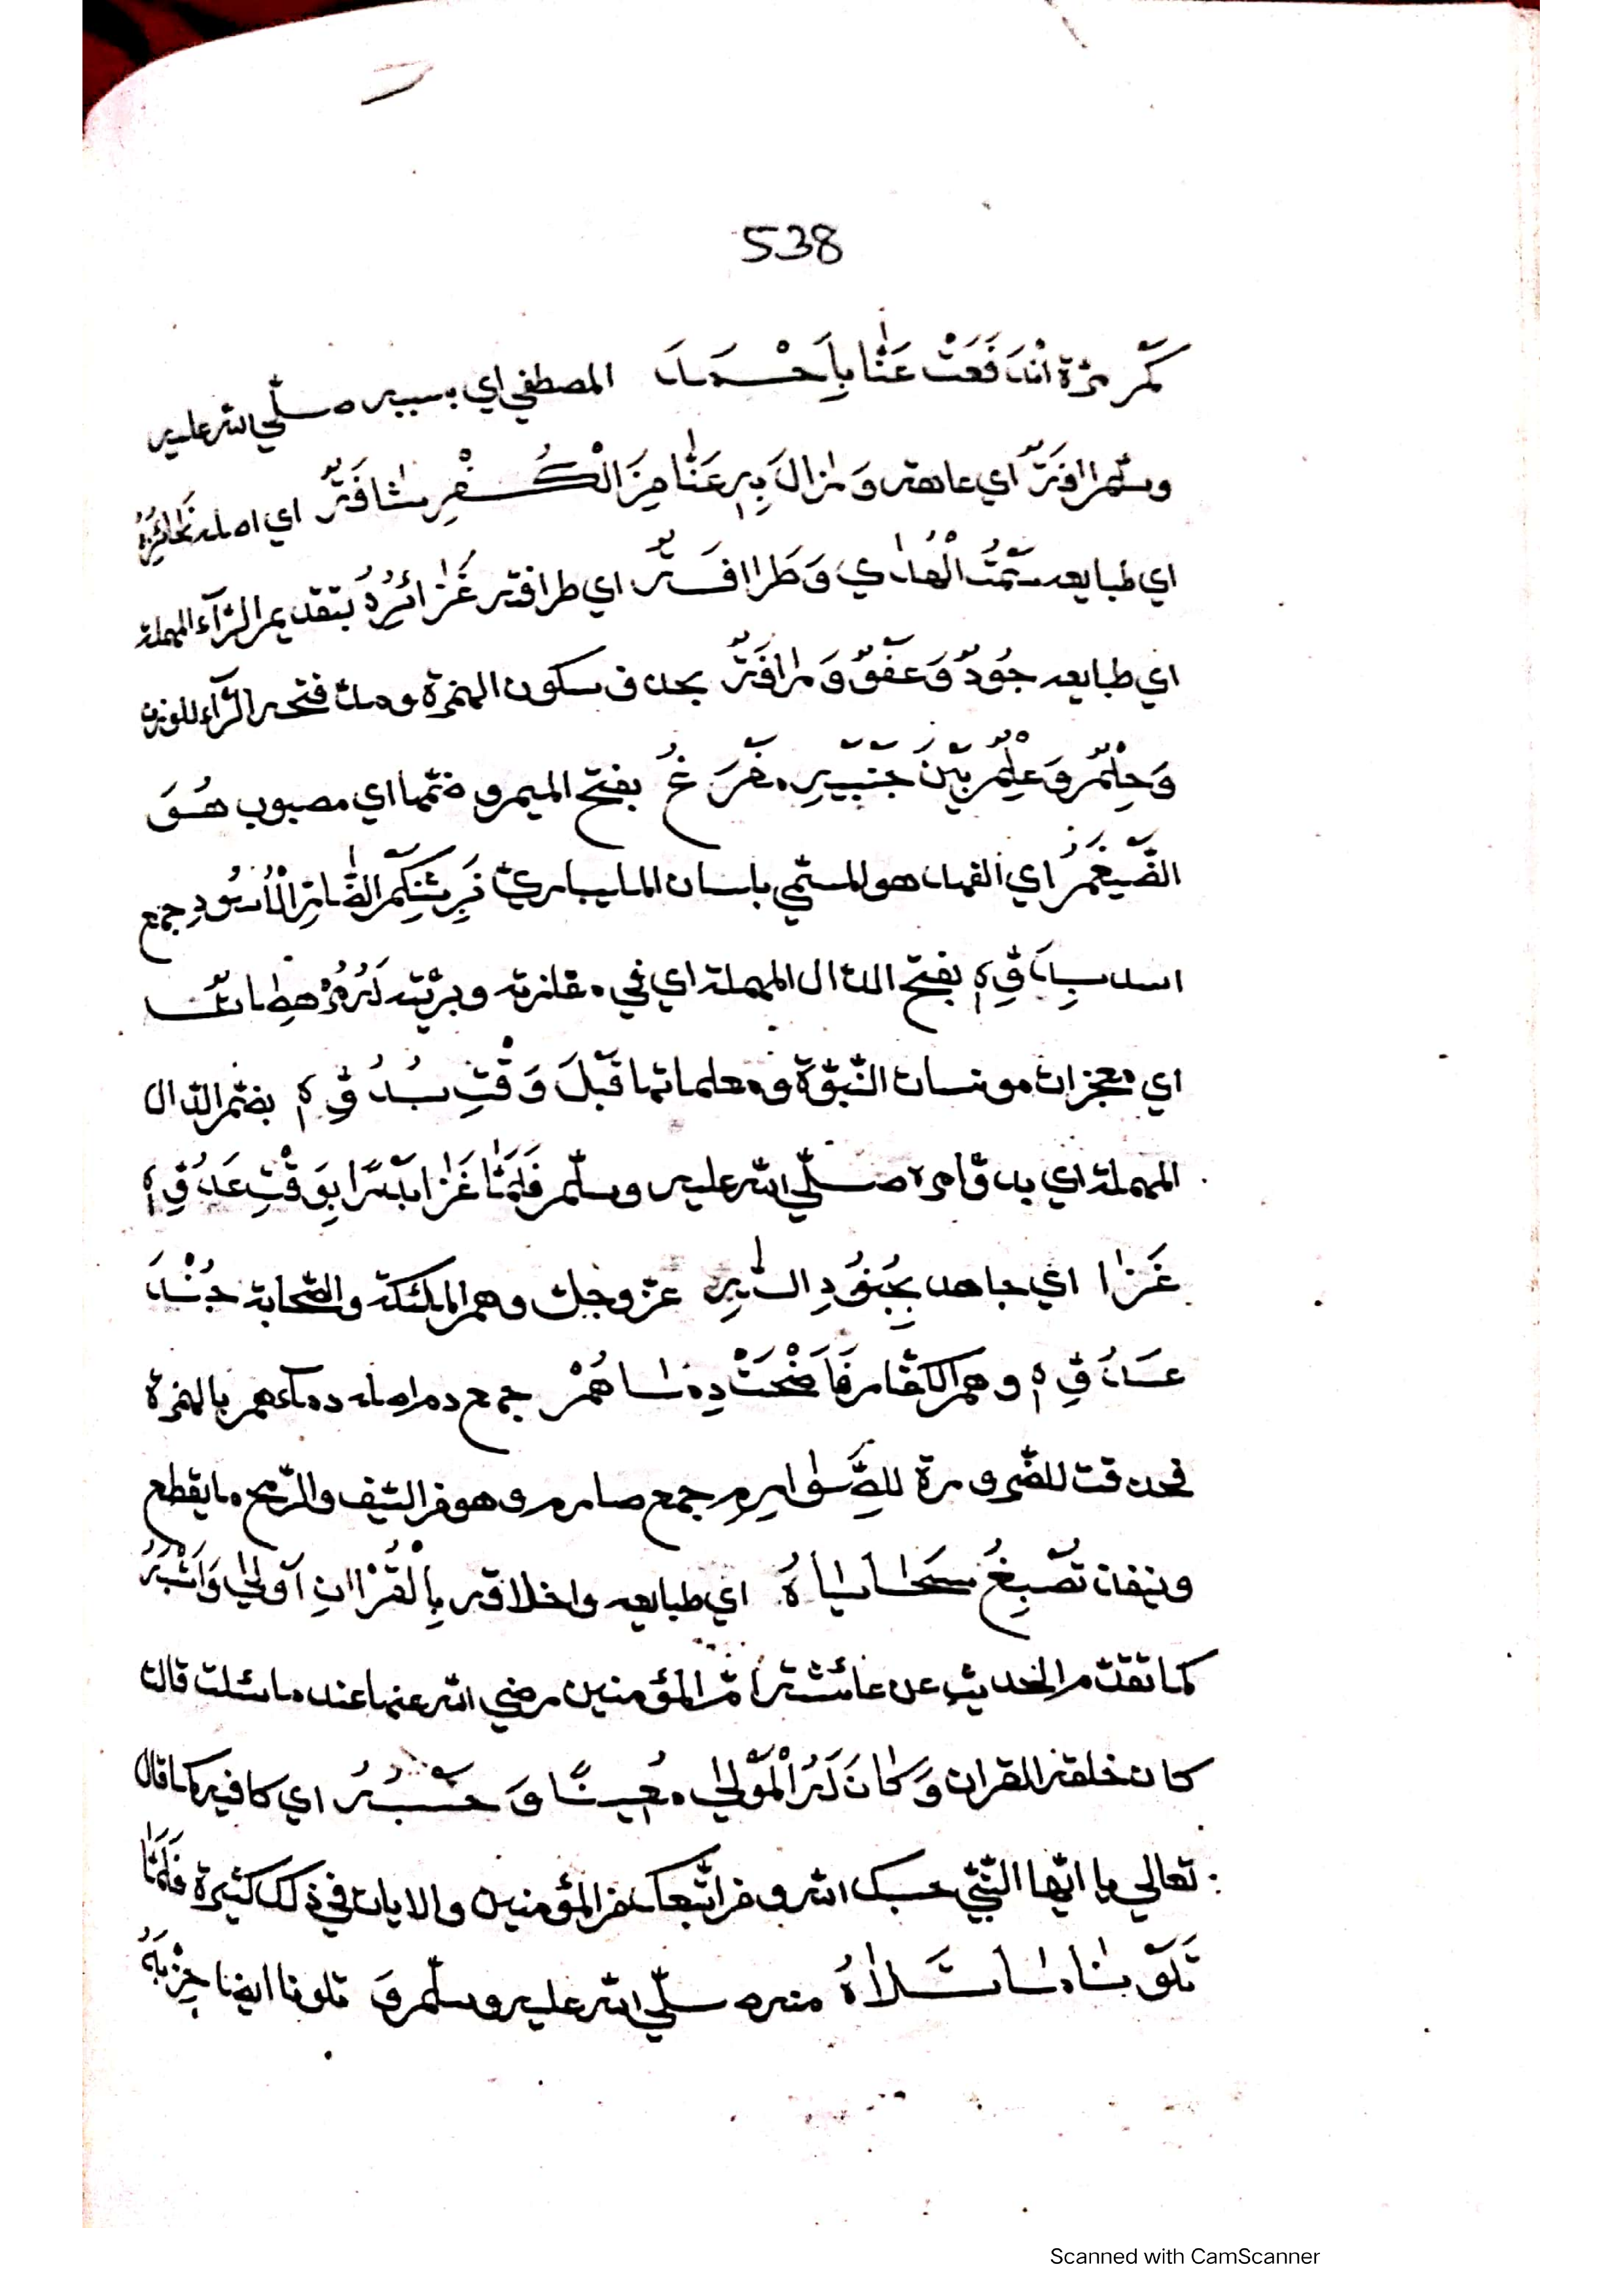 538
كم مرّة اندَفَعَتْ عَنَّا بِاَحْمَدَ المصطفي اي بسببه صلّي الله عليه
وسلّم اافَةٌ اي عاهة وَزالَ بِهِ عَنَّا مِنَ الْكُفْرِ شافَةٌ اي اصله نَحائِزُهُ
اي طبايعه سَمْتُ الْهُدٰي وَطَراافَةٌ اي طرافة غَرٰائِزُهُ بتقديم الرّآء المهملة
اي طبايعه جُوْدٌ وَعَفْوٌ وَرٰافَةٌ بحذف سكون الهمزة ومدّ فتحه الرّآء للوزن
وَحِلْمٌ وَعِلْمٌ بَيْنَ جَنْبَيْهِ مفْرَغُ بفتح الميم وضمّها اي مصبوب هُوَ
الضَّيْغَمُ اي الفهد هو المسمّي بلسان المليباريّ الضّارِ الْاُسُوْدِ جمع
اسد بفتح الدال المهملة اي في
اي معجزات مونسات النّبوّة ومعلماتها قَبْلَ وَقْتِ بُدُوِّهِ بضمّ الدّال
المهملة اي بدوّ امره صلّي الله عليه وسلّم فَلَمَّا غَزٰا بَدْرًا بِوَقْتِ غَدُوِّهِ
غَزٰا اي جاهد بِجُنُوْدِ اللّٰهِ عزّوجلّ وهم الملئكة والصّحابة جُنْدَ
عَدُوِّهِ وهم الكفّار فَاَضْحَتْ دِمٰاهُمْ جمع دم اصله دمآءهم بالهمزة
فحذفت للضّرورة لِلصَّوٰارِمِ جمع صارم وهو من السّيف والرّمح ما يقطع
وينفذ تَصْبِغُ سَجٰايٰاهُ اي طبايعه واخلاقه بِالْقُرْاانِ اَوْلٰي وَاَشْبَهُ
كما تقدّم الحديث عن عائشة امّ المؤمنين رضي الله عنها عند ما سئلت قالت
كان خلقه القران وَكٰانَ لَهُ الْمَوْلٰي مُعِيْنًا وَحَسْبُهُ اي كافيه كما قال
تعالي يا ايّها النّبيّ حسبك الله ومن اتّبعك من المؤمنين والايات في ذلك كثيرة فَلَمَّا
تَلَوْنٰا مٰا تَلاٰهُ منه صلّي الله عليه وسلّم وَ تلونا ايضا حِزْبُهُ
Scanned with CamScanner